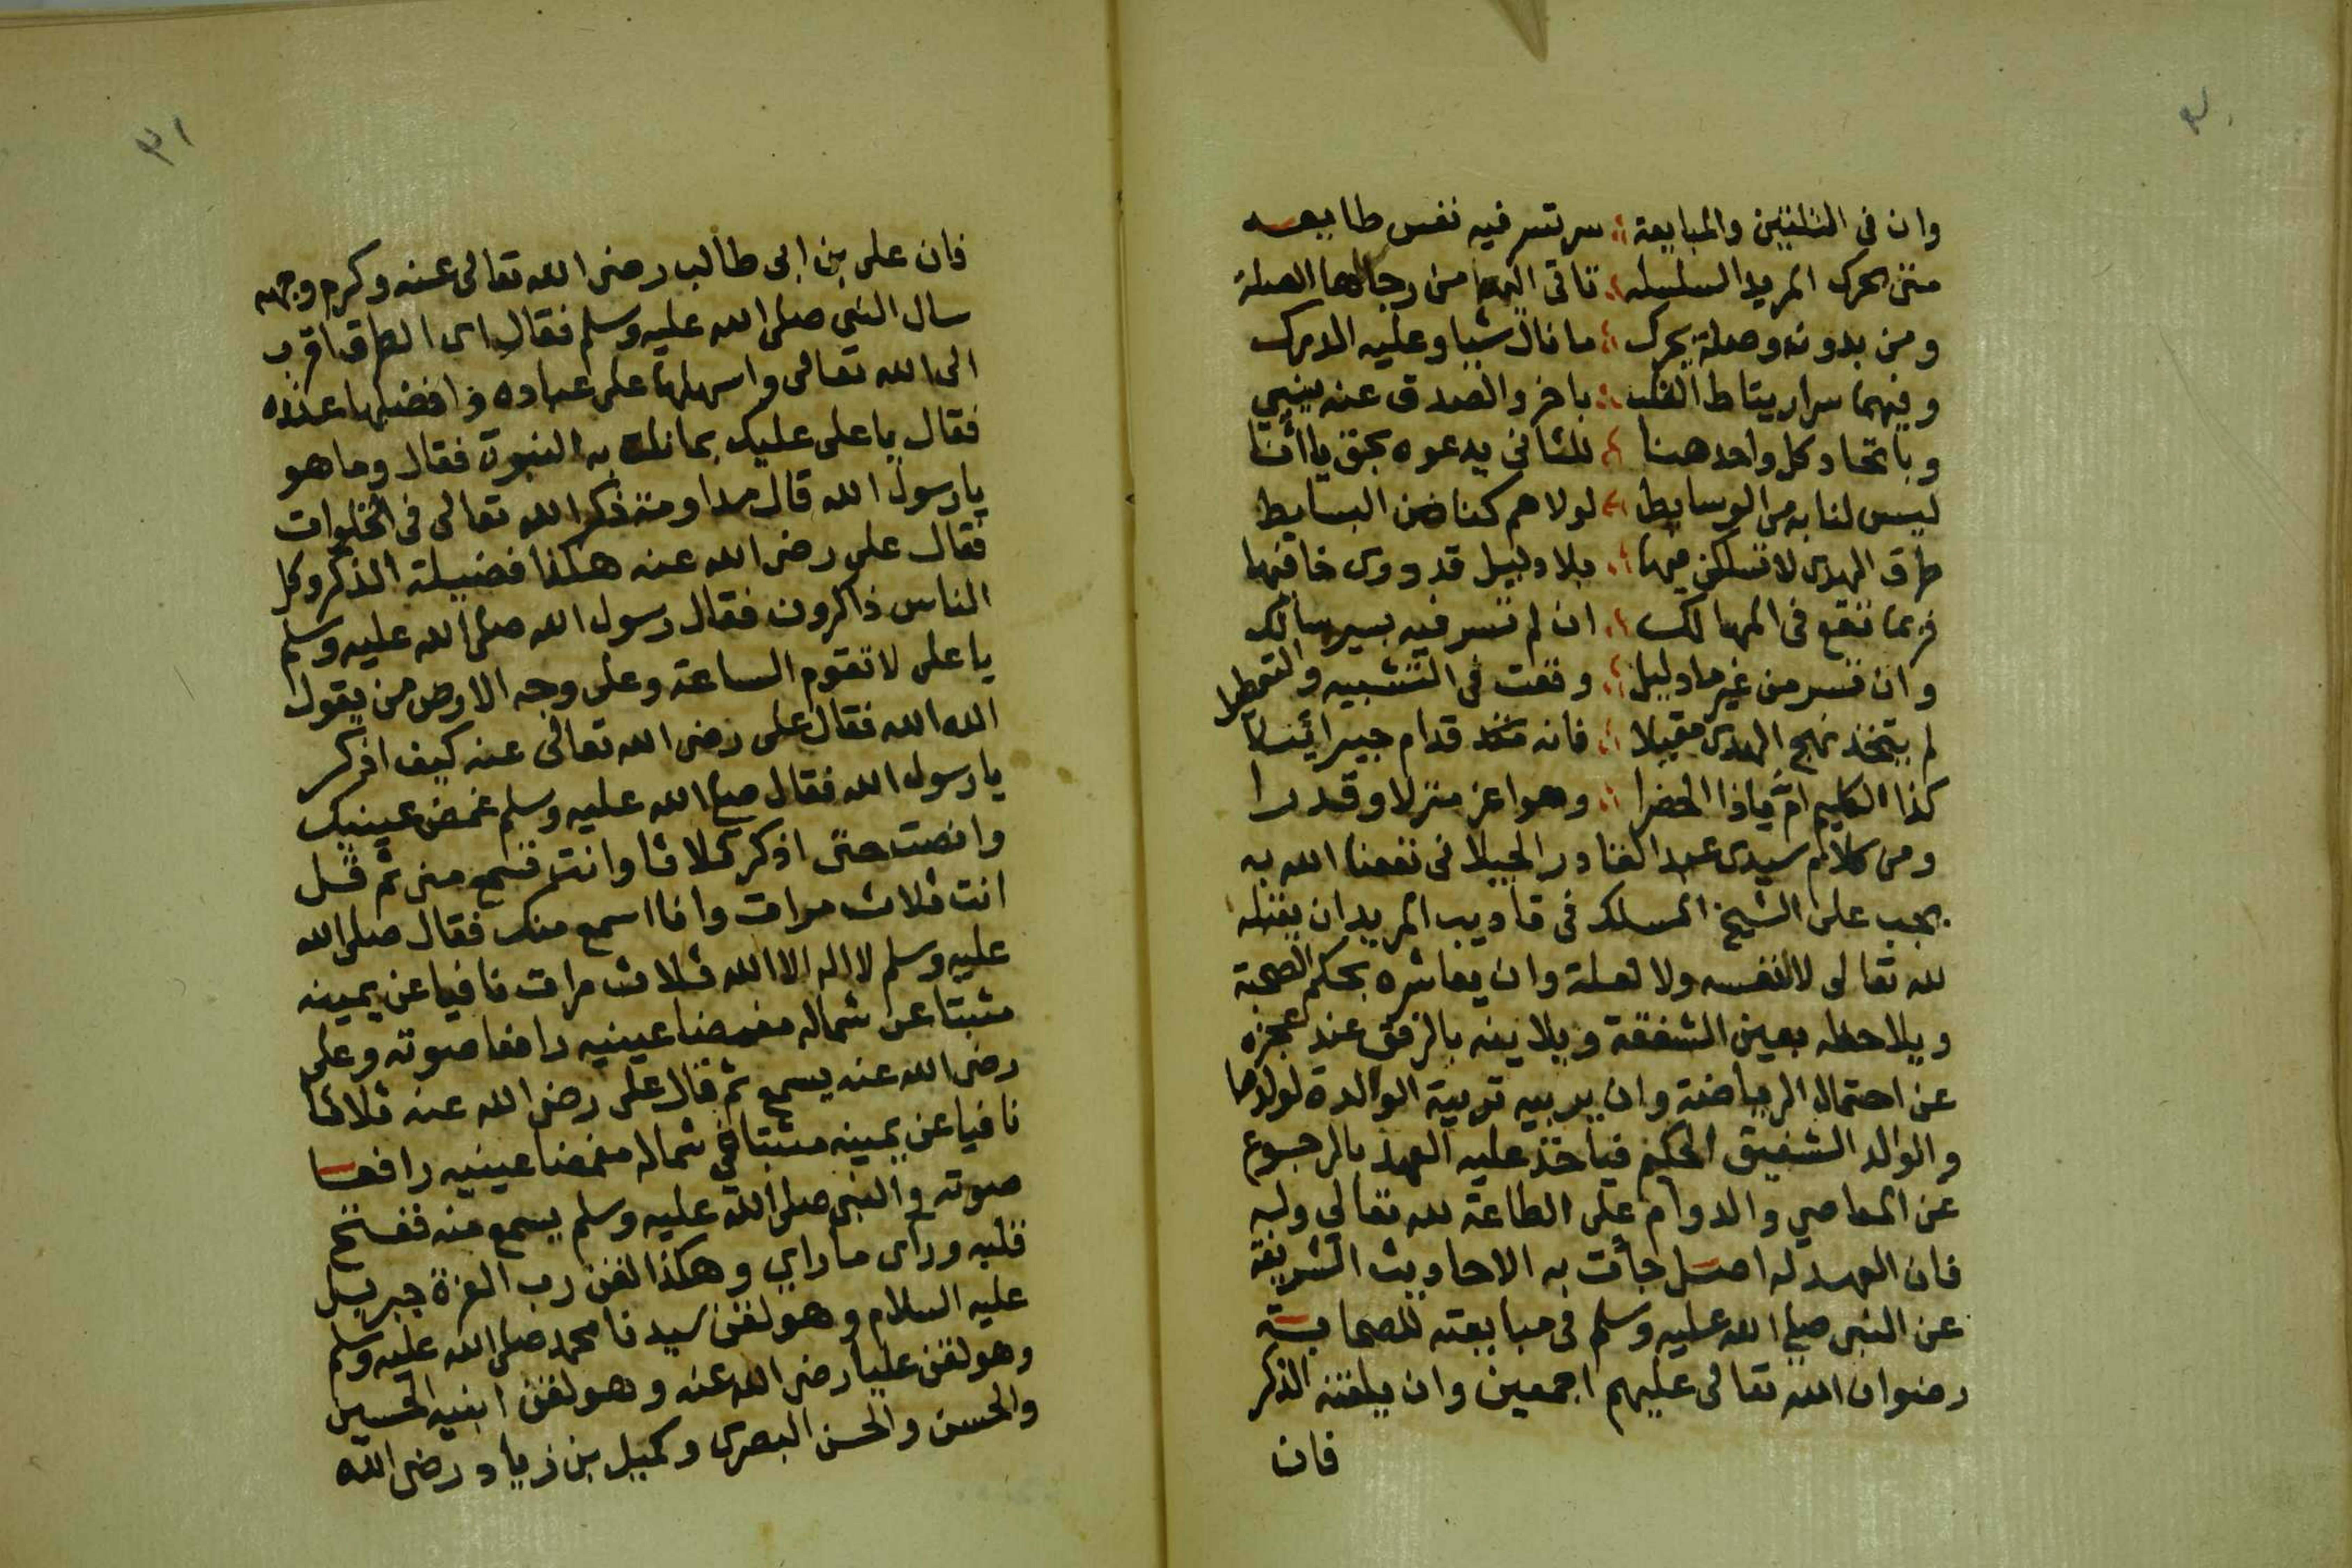 ٣٠
وان فى التلقين والمبايعة سر تسر فيه نفس طايعه
متى تحرك المريد السلسله تاتى اليها من رجالها الصله
ومن بدون وصلة يحرك ما نال شيا وعليه الدرك
وفيهما سر ارتباط القلب باخر والصدق عنه ينبي
وباتحاد كل واحد هنا للثانى يدعوه بحق يا أنا
ليس لنا بد من الوسايط لولاهم كنا من البسايط
طرق الهدى لا تسلكن فيها بلا دليل قد درى خافيها
فربما تقع فى المهالك ان لم تسر فيه بسير سالك
وان تسر من غير ما دليل وقعت فى التشبيه والتعطيل
لم يتخذ نهج الهدى مقيلا فانه قدام جبرائيلا
كذا الكليم ام ياذا الخضرا وهو اعز منزلا وقدرا
ومن كلام سيدى عبد القادر الجيلانى نفعنا الله به
يجب على الشيخ المسلك فى تاديب المريد ان يقبله
لله تعالى لا لنفسه ولا لعلة وان يعاشره بحكم الصحبة
ويلاحظه بعين الشفقة ويلاينه بالرفق عند عجزه
عن احتمال الرياضة وان يربيه تربية الوالدة لولدها
والوالد الشفيق الحكيم فياخذ عليه العهد بالرجوع
عن المعاصي والدوام على الطاعة لله تعالى وله
فان العهد له اصل جأت به الاحاديث الشريفة
عن النبى صلى الله عليه وسلم فى مبايعته للصحابة
رضوان الله تعالى عليهم اجمعين وان يلقنه الذكر
فان
٣١
فان على بن ابى طالب رضى الله تعالى عنه وكرم وجهه
سال النبي صلى الله عليه وسلم فقال اى الطرق اقرب
الى الله تعالى واسهلها على عباده وافضلها عنده
فقال يا على عليك بما نلت به النبوة فقال وما هو
يا رسول الله قال مداومة ذكر الله تعالى فى الخلوات
فقال على رضى الله عنه هكذا فضيلة الذكر وكل
الناس ذاكرون فقال رسول الله صلى الله عليه وسلم
يا على لا تقوم الساعة وعلى وجه الارض من يقول
الله الله فقال على رضى الله تعالى عنه كيف اذكر
يا رسول الله فقال صلى الله عليه وسلم غمض عينيك
وانصت حتى اذكر ثلاثا وانت تسمع منى ثم قل
انت ثلاث مرات وانا اسمع منك فقال صلى الله
عليه وسلم لا اله الا الله ثلاث مرات نافيا عن يمينه
مثبتا عن شماله مغمضا عينيه رافعا صوته وعلى
رضى الله عنه يسمع ثم قال على رضى الله عنه ثلاثا
نافيا عن يمينه مثبتا في شماله مغمضا عينيه رافعا
صوته والنبى صلى الله عليه وسلم يسمع منه ففتح
قلبه ورأى ما راي وهكذا لقن رب العزة جبريل
عليه السلام وهو لقن سيدنا محمد صلى الله عليه وسلم
وهو لقن عليا رضى الله عنه وهو لقن ابنيه الحسين
والحسن والحسن البصرى وكميل بن زياد رضى الله